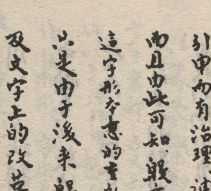 引申而有治理
而且由此可知
這字形本意的
只是由于後来
及文字上的改